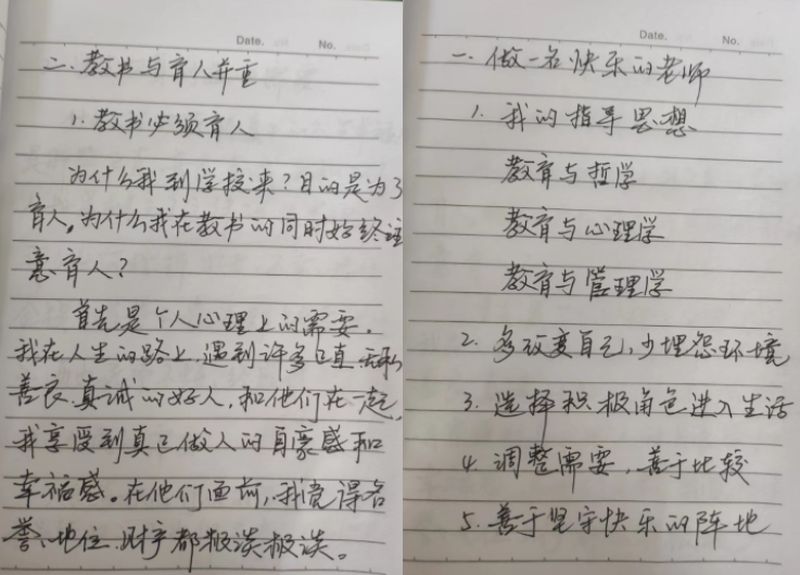 Date.
No.
二、教书与育人并重
1. 教书必须育人
为什么我到学校来？目的是为了
育人。为什么我在教书的同时始终注
意育人？
首先是个人心理上的需要。
我在人生的路上，遇到许多正直、无私、
善良、真诚的好人，和他们在一起，
我享受到真正做人的自豪感和
幸福感。在他们面前，我觉得名
誉、地位、财产都极淡极淡。
Date.
No.
一、做一名快乐的老师
1. 我的指导思想
教育与哲学
教育与心理学
教育与管理学
2. 多改变自己，少埋怨环境
3. 选择积极角色进入生活
4. 调整需要，善于比较
5. 善于坚守快乐的阵地